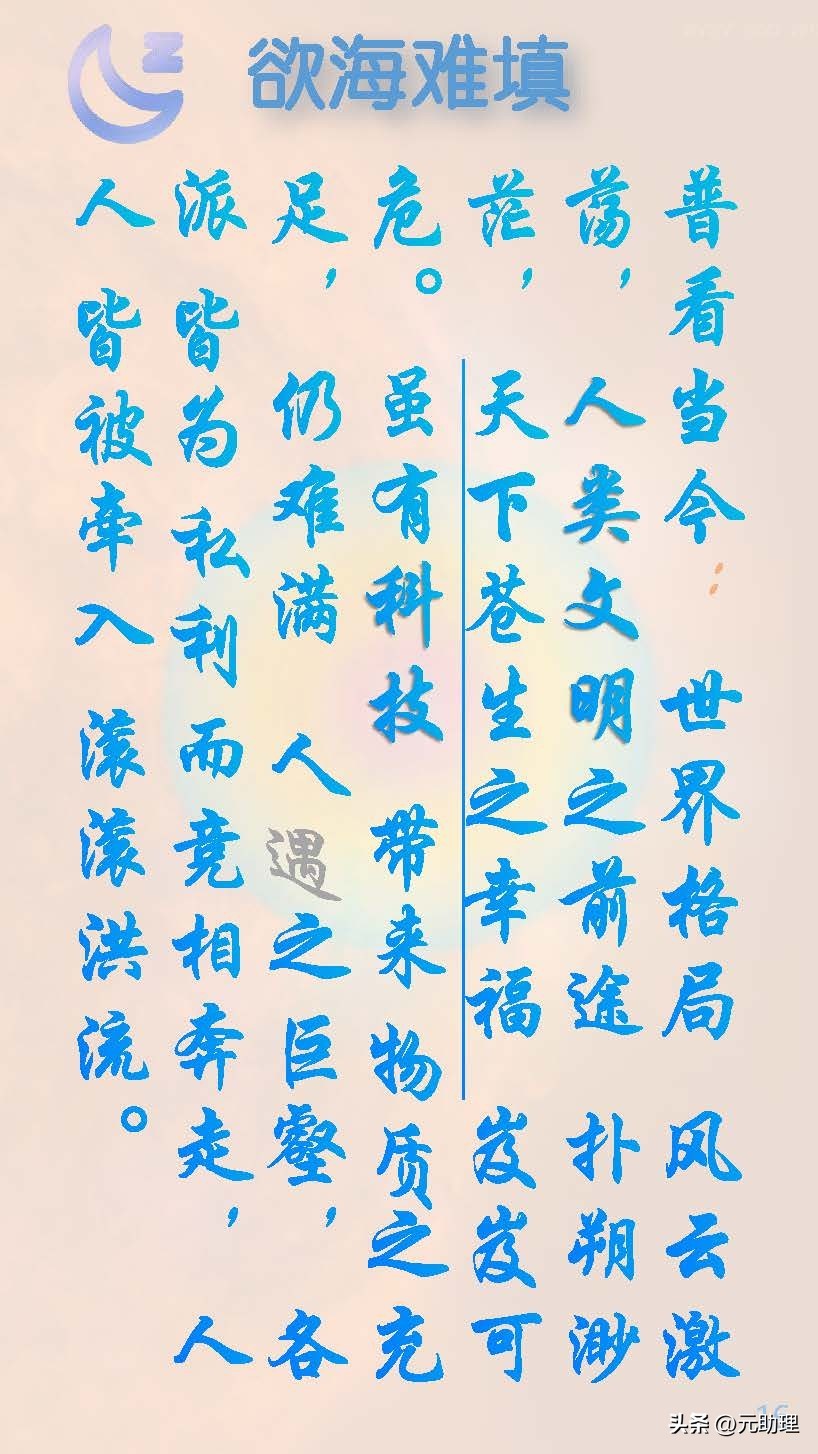 欲海难填
普看当今： 世界格局 风云激
荡， 人类文明之前途 扑朔渺
茫， 天下苍生之幸福 岌岌可
危。 虽有科技 带来物质之充
足， 仍难满 人遇之巨壑， 各
派 皆为私利而竞相奔走， 人
人 皆被牵入 滚滚洪流。
Z
16
头条 @元助理